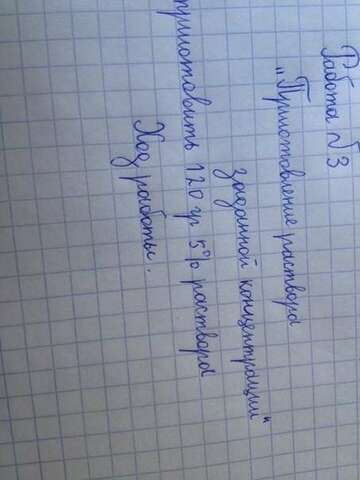 Работа №3
"Приготовление раствора
заданной концентрации"
приготовить 120 гр 5% раствора
Ход работы.